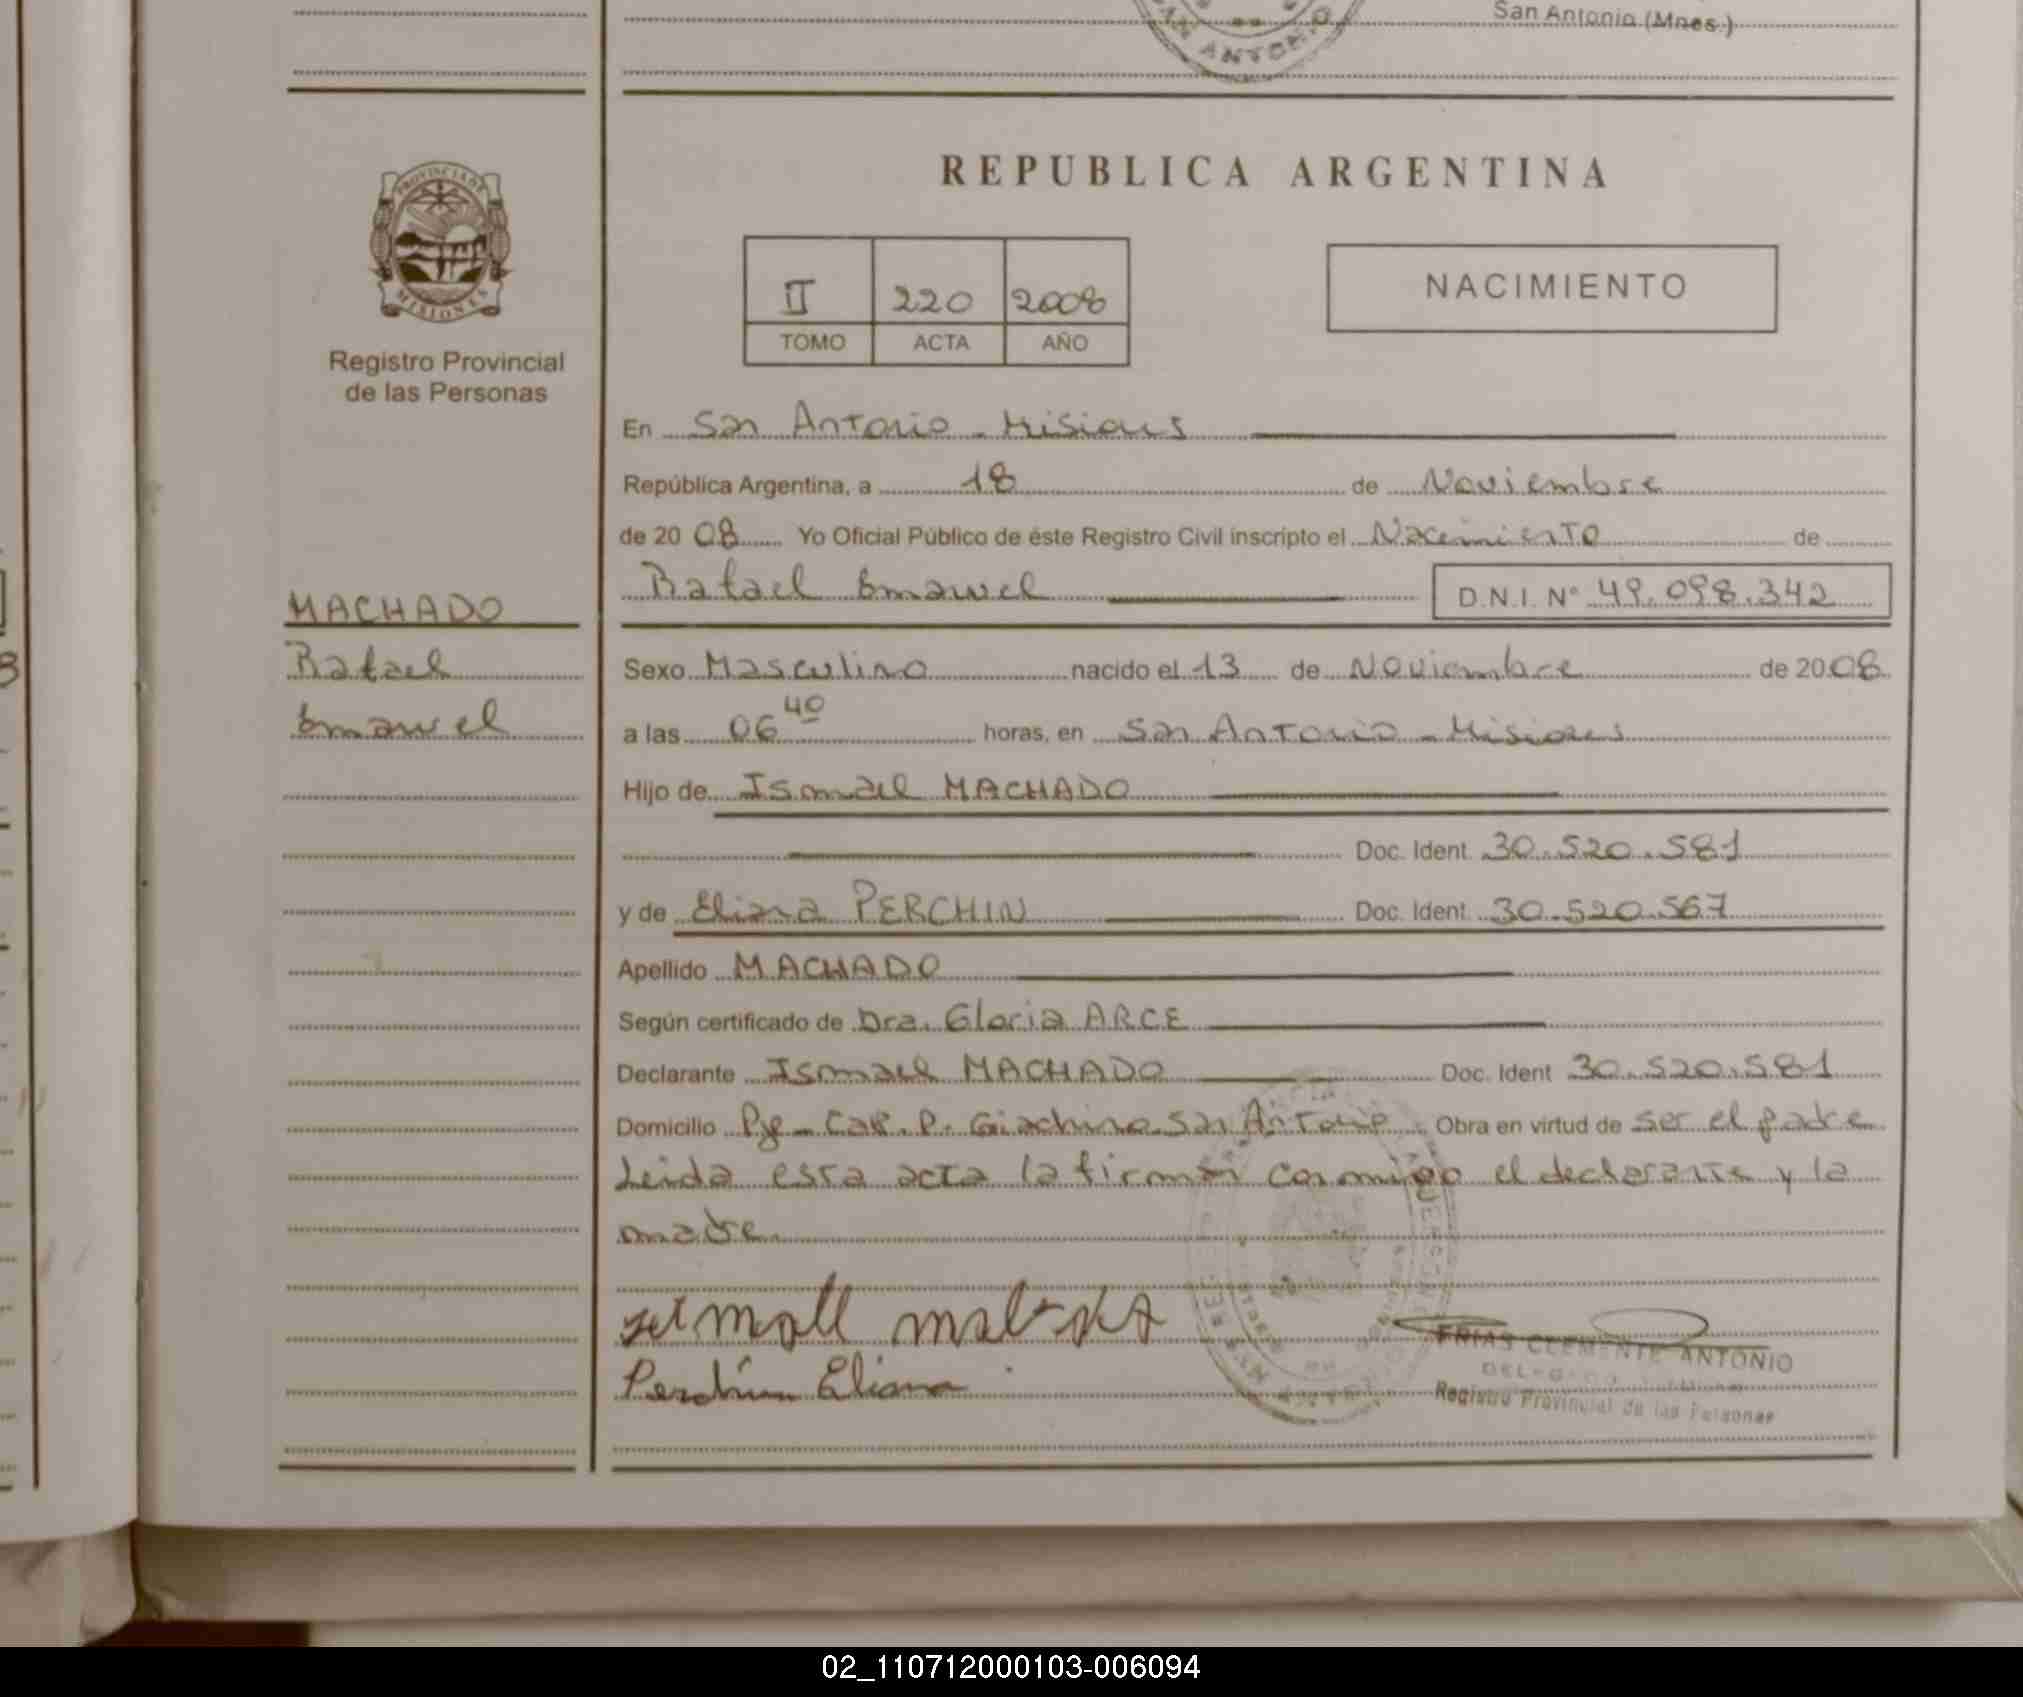 San Antonio (Mnes.)
SAN ANTONIO
REPUBLICA ARGENTINA
PROVINCIA DE
MISIONES
Registro Provincial
de las Personas
II 220 2008
TOMO ACTA AÑO
NACIMIENTO
En San Antonio - Misiones
República Argentina, a 18 de Noviembre
de 2008 Yo Oficial Público de éste Registro Civil inscripto el Nacimiento de
Rafael Emanuel D.N.I. N° 49.098.342
MACHADO
Rafael
Emanuel
Sexo Masculino nacido el 13 de Noviembre de 2008
a las 06 40 horas, en San Antonio - Misiones
Hijo de Ismael MACHADO
Doc. Ident. 30.520.581
y de Eliana PERCHIN Doc. Ident. 30.520.567
Apellido MACHADO
Según certificado de Dra. Gloria ARCE
Declarante Ismael MACHADO Doc. Ident 30.520.581
Domicilio Pje - Cap. P. Giachino San Antonio Obra en virtud de ser el padre
Leida esta acta la firman conmigo el declarante y la
madre.
Perchin Eliana
FRIAS CLEMENTE ANTONIO
Registro Provincial de las Personas
02_110712000103-006094